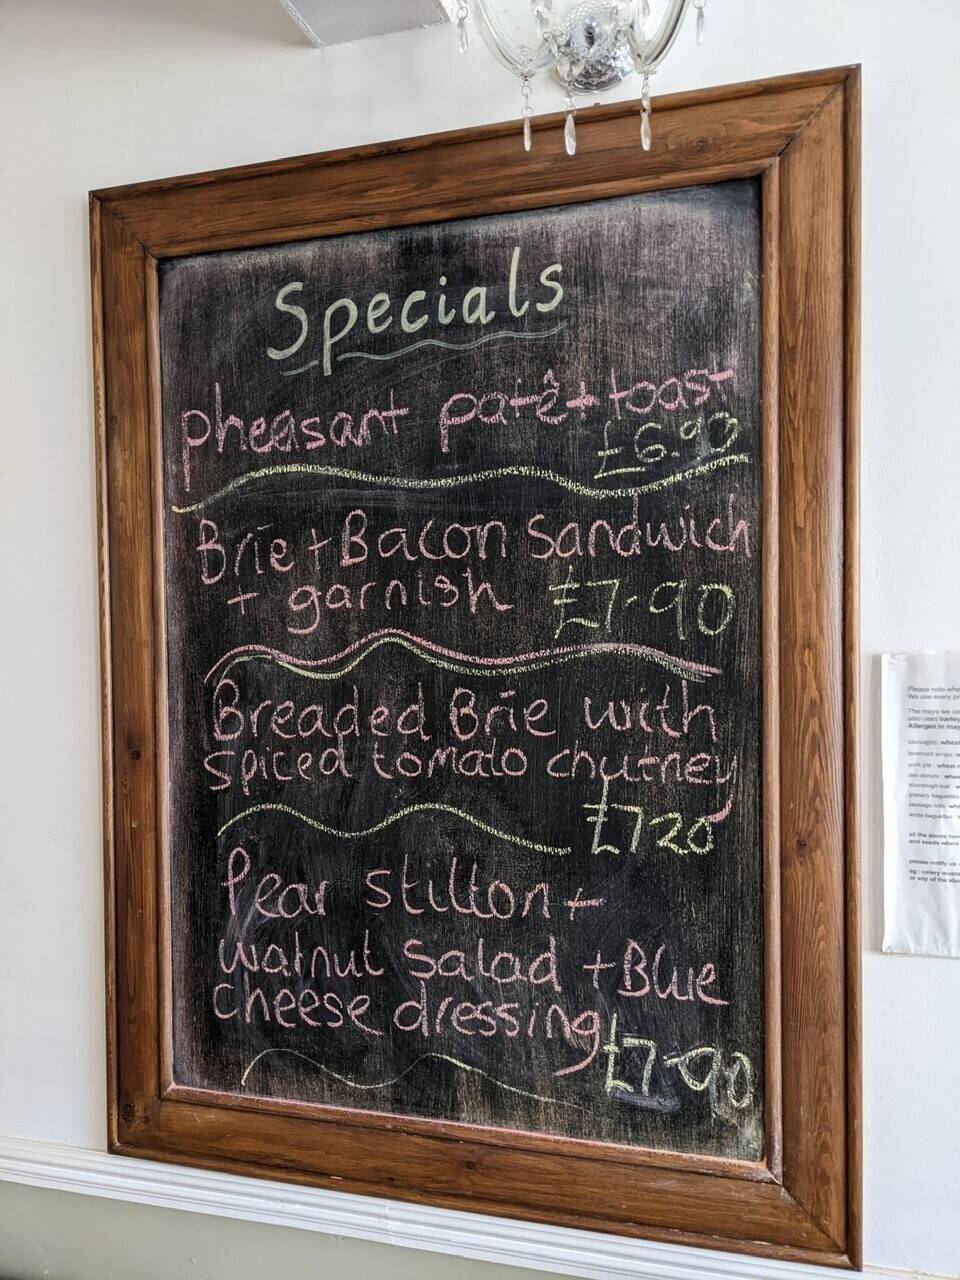 Specials
pheasant patê + toast
£6.90
Brie + Bacon Sandwich
+ garnish £7.90
Breaded Brie with
spiced tomato chutney
£7.20
Pear Stilton +
walnut Salad + Blue
cheese dressing
£7.90
Please note
We use every
The mayo we
also uses barley
Allergen in
sausages: wheat
beetroot wraps :
pork pie : wheat
jam donuts :
sourdough loaf :
granary baguettes
sausage rolls
white baguettes
all the above
and seeds where
please notify us
eg : celery
or any of the